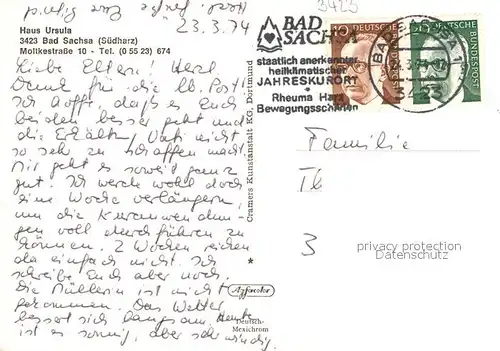 Haus Ursula
3423 Bad Sachsa (Südharz)
Moltkestraße 10 - Tel. (0 55 23) 674
23.3.74
Liebe Eltern! Herzl.
Dank für die lb. Post!
Ich hoffe, daß es Euch
beiden besser geht und
die Erkält. Vati nicht
so sehr zu schaffen macht
Mir geht es soweit ganz
gut. Ich werde wohl doch
eine Woche verlängern,
um die Kuranwendun-
gen voll durchführen zu
können. 2 Wochen reichen
da einfach nicht. Ich
schreibe Euch aber noch.
Die ist nicht
gekommen. Das Wetter
bessert sich langsam, Heute
ist es sonnig, aber sehr
windig
Cramers Kunstanstalt KG, Dortmund
Azfocolor
Deutsch-
Mexichrom
3423
BAD
SACHSA
staatlich anerkannter
heilklimatischer
JAHRESKURORT
Rheuma Herz
Bewegungsschäden
BAD SACHSA 1
3423
DEUTSCHE
BUNDESPOST
Familie
Tb
3
privacy protection
Datenschutz